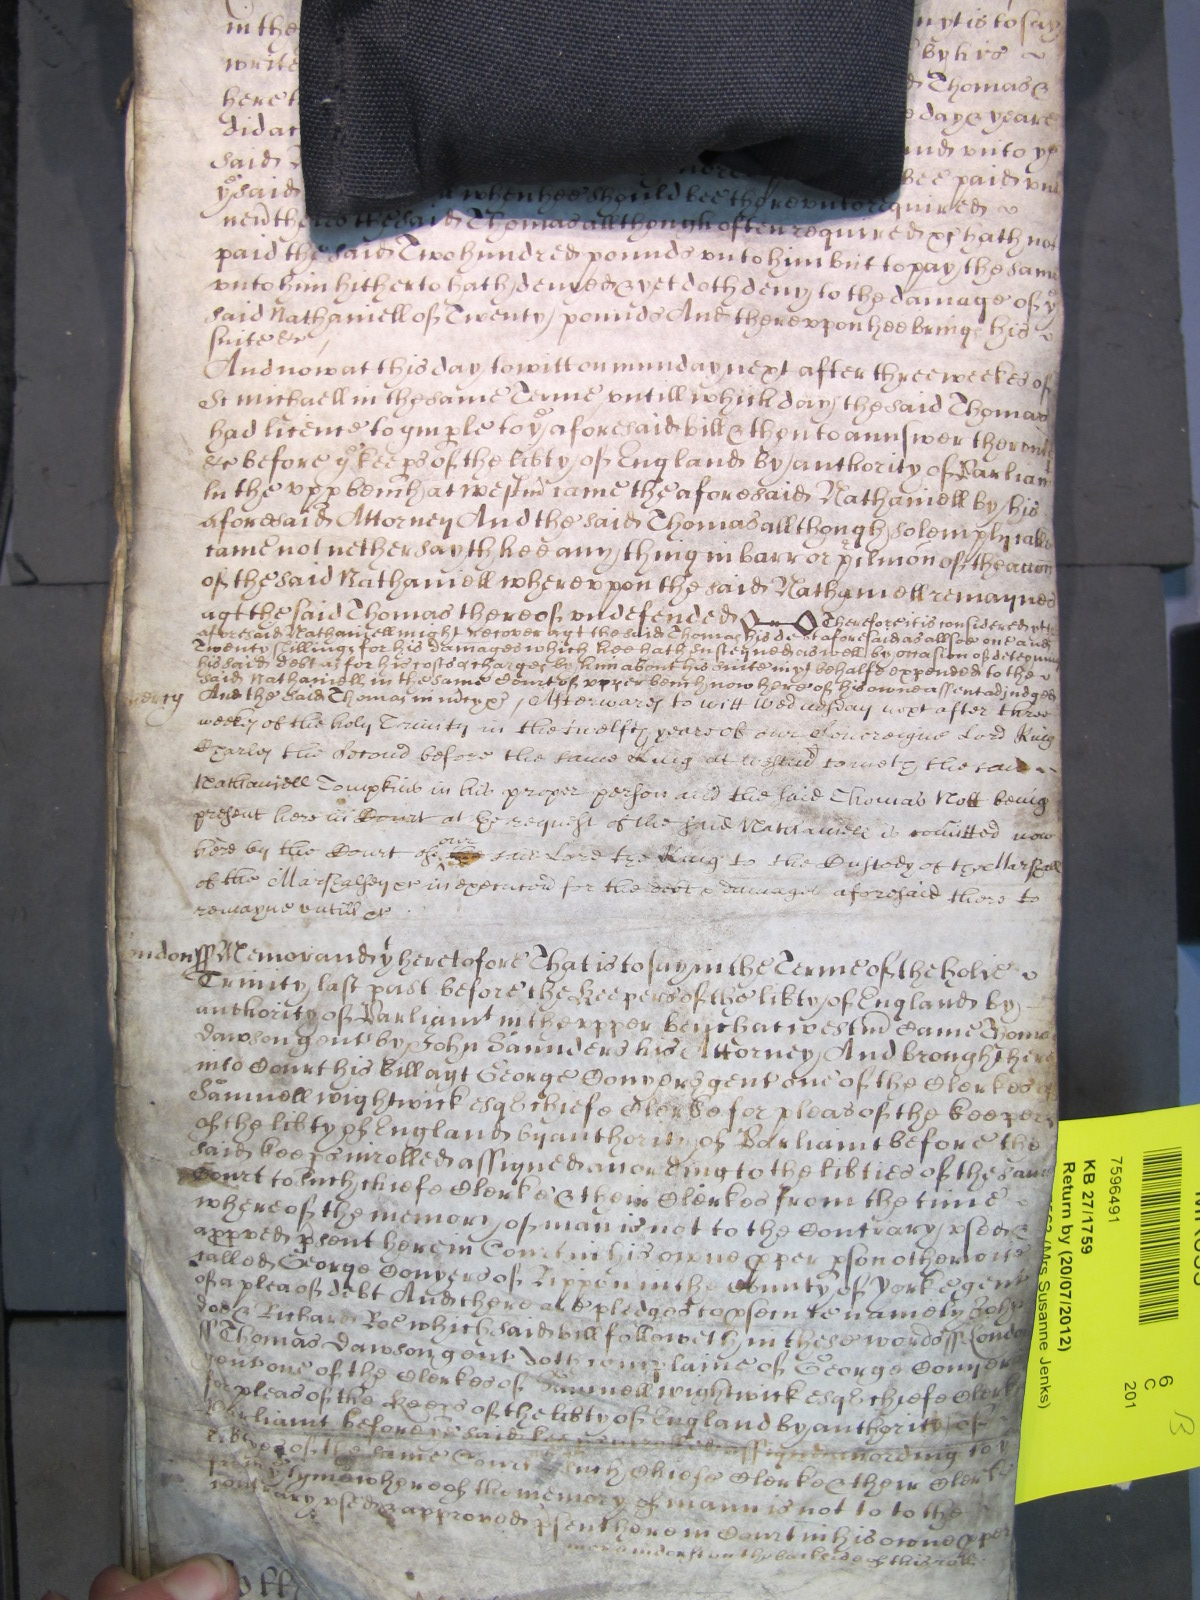 in the
write
here t
did at
said
yͤ said
by his
Thomas &
day & yeare
and unto yͤ
bee paid
when hee should bee thereunto required
the said Thomas allthough often required &c hath not
paid the said Two hundred pounds unto him but to pay the same
unto him hitherto hath denyed & yet doth deny to the damage of yͤ
said Nathaniell of Twenty pounds And thereuppon hee brings his
suite &c
And now at this day to witt on munday next after three weekes of
St michaell in the same Terme untill which day the said Thomas
had licence to imple to yͤ aforesaid bill & then to annswer thereunto
&c before yͤ keeps of the libty of England by authority of Parliamt
In the upp bench at westm came the aforesaid Nathaniell by his
aforesaid Attorney And the said Thomas allthough solemply called
came not nether sayth hee any thing in barr or of the accon
of the said Nathaniell whereuppon the said Nathaniell remaynes
agt the said Thomas thereof undefended Therefore it is considered
aforesaid Nathaniell might recover agt the said Thomas his debt aforesaid as allsoe one and
Twenty shillings for his damages which hee hath susteyned as well by occasion of deteyning
his said debt as for his costs & charges by him about his suite in yt behalfe expended to the
said Nathaniell in the same Court of upper bench now here of his owne assent adjudged
And the said Thomas in mcy &c Afterwards to witt Wednesday next after three
mercy
weekes of the holy Trinity in the twelfth yeare of our Sovereigne Lord King
Charles the Second before the same King at westm cometh the said
Nathaniell Tompkins in his proper person and the said Thomas Nott being
present here in Court at the request of the said Nathaniell is comitted now
here by the Court of our said Lord the King to the Custody of the Marshall
of the Marshalsey &c in execucon for the debt & damages aforesaid there to
remayne untill &c
ondon ss Memorand yt heretofore That is to say in the Terme of the holie
Trinity last past before the Keepers of the libty of England by
authority of Parliamt in the upper bench at westm Came Thomas
dawson gent by John Saunders his Attorney And brought here
into Court his Bill agt George Conyers gent one of the Clerkes of
Samuell wightwick esq chiefe Clerke for pleas of the keepers
of the libty of England by authority of Parliamt before the
said keeps inrolled assigned according to the libties of the same
Court to such chiefe Clerke & their Clerkes from the time
whereof the memory of man is not to the Contrary used &
appved psent here in Court in his owne pper pson otherwise
called George Conyers of Rippon in the County of Yorke gent
of a plea of debt And there are pledges to psecute namely John
doe & Richard Roe which said bill followeth in these words ss London
ss Thomas Dawson gent doth complaine of George Conyers
gent one of the Clerkes of Samuell wightwick esq chiefe Clerke
for pleas of the Keeps of the libty of England by authority of
Parliamt before yͤ said keeps inrolled assigned according to yͤ
libtyes of the same Court such Chiefe Clerke & their Clerkes
from yͤ tyme whereof the memory of mann is not to to the
contrary used & approved psent here in Court in his owne pper
more indorst on the backside of this roll
7596491
KB 27/1759
Return by (20/07/2012)
(Mrs Susanne Jenks)
6
C
201